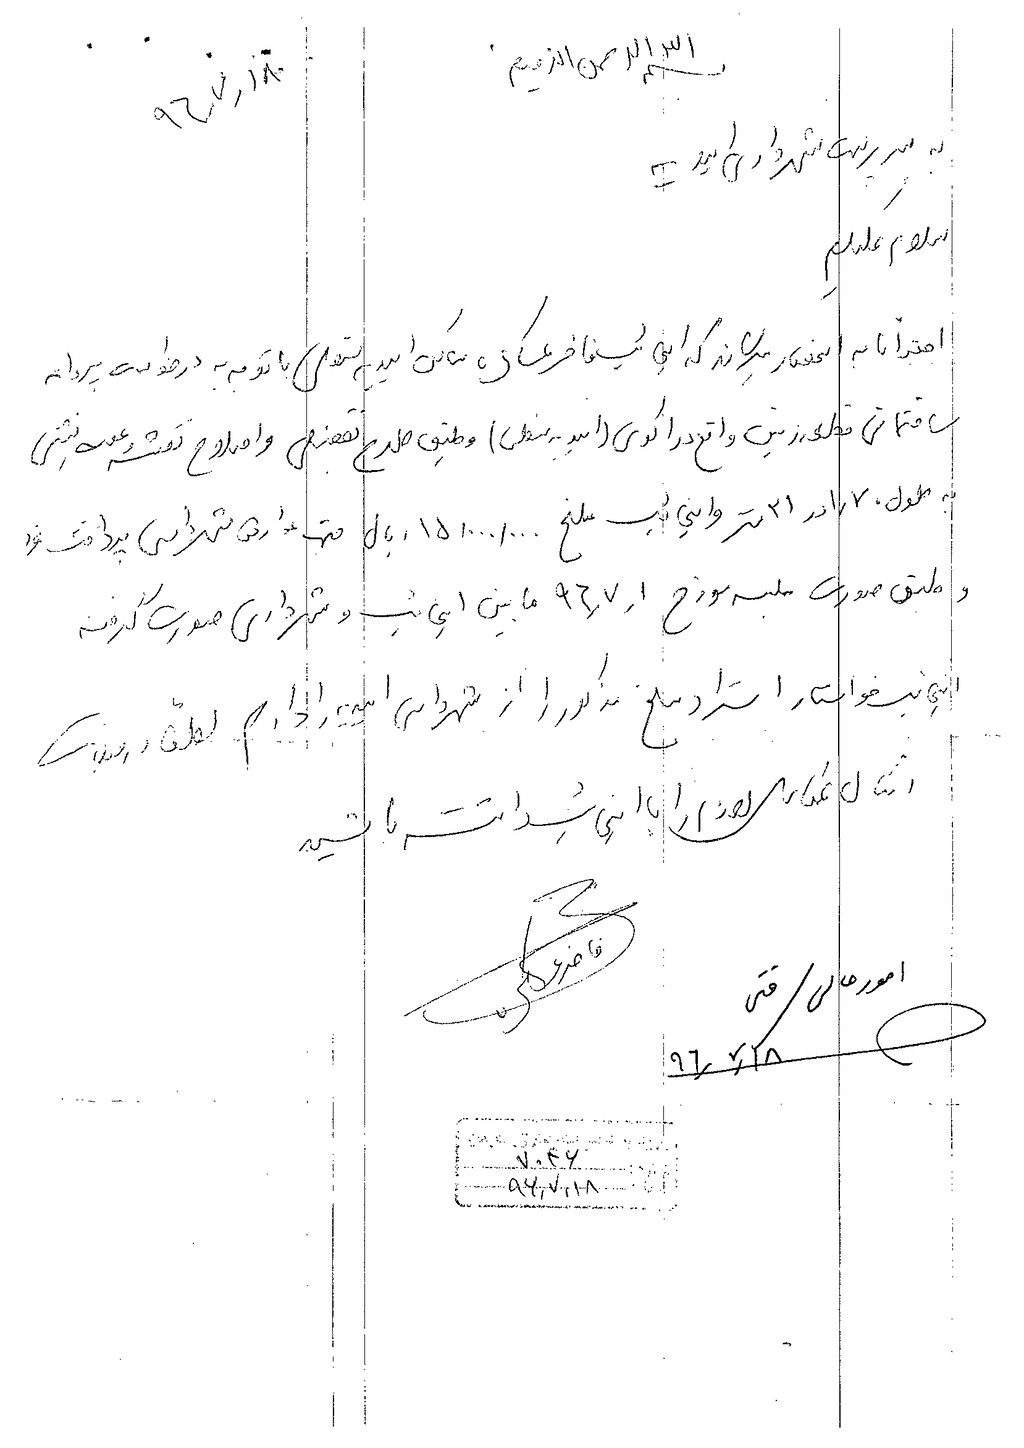 بسم الله الرحمن الرحیم
۹۶٫۷٫۱۸
به مدیریت شهرداری امیدیه
سلام علیکم
احتراماً به استحضار میرساند که اینجانب ساکن امیدیه با توجه به درخواست پروانه
ساختمانی قطعه زمین واقع در (امیدیه) و طبق طرح تفضیلی و اصلاح نقشه و عقب نشینی
به طول ۲۰ و در ۳۱ متر و اینجانب مبلغ ۱۵٬۰۰۰٬۰۰۰ ریال جهت عوارض شهرداری پرداخت
و طبق صورت جلسه مورخ ۹۶٫۷٫۱ مابین اینجانب و شهرداری صورت گرفته
اینجانب خواستار استرداد مبلغ مذکور را از شهرداری امیدیه را دارم لطفاً
همکاری لازم را با اینجانب داشته باشید
امور مالی
۹۶٫۷٫۱۸
۷۰۴۶
۹۶٫۷٫۱۸